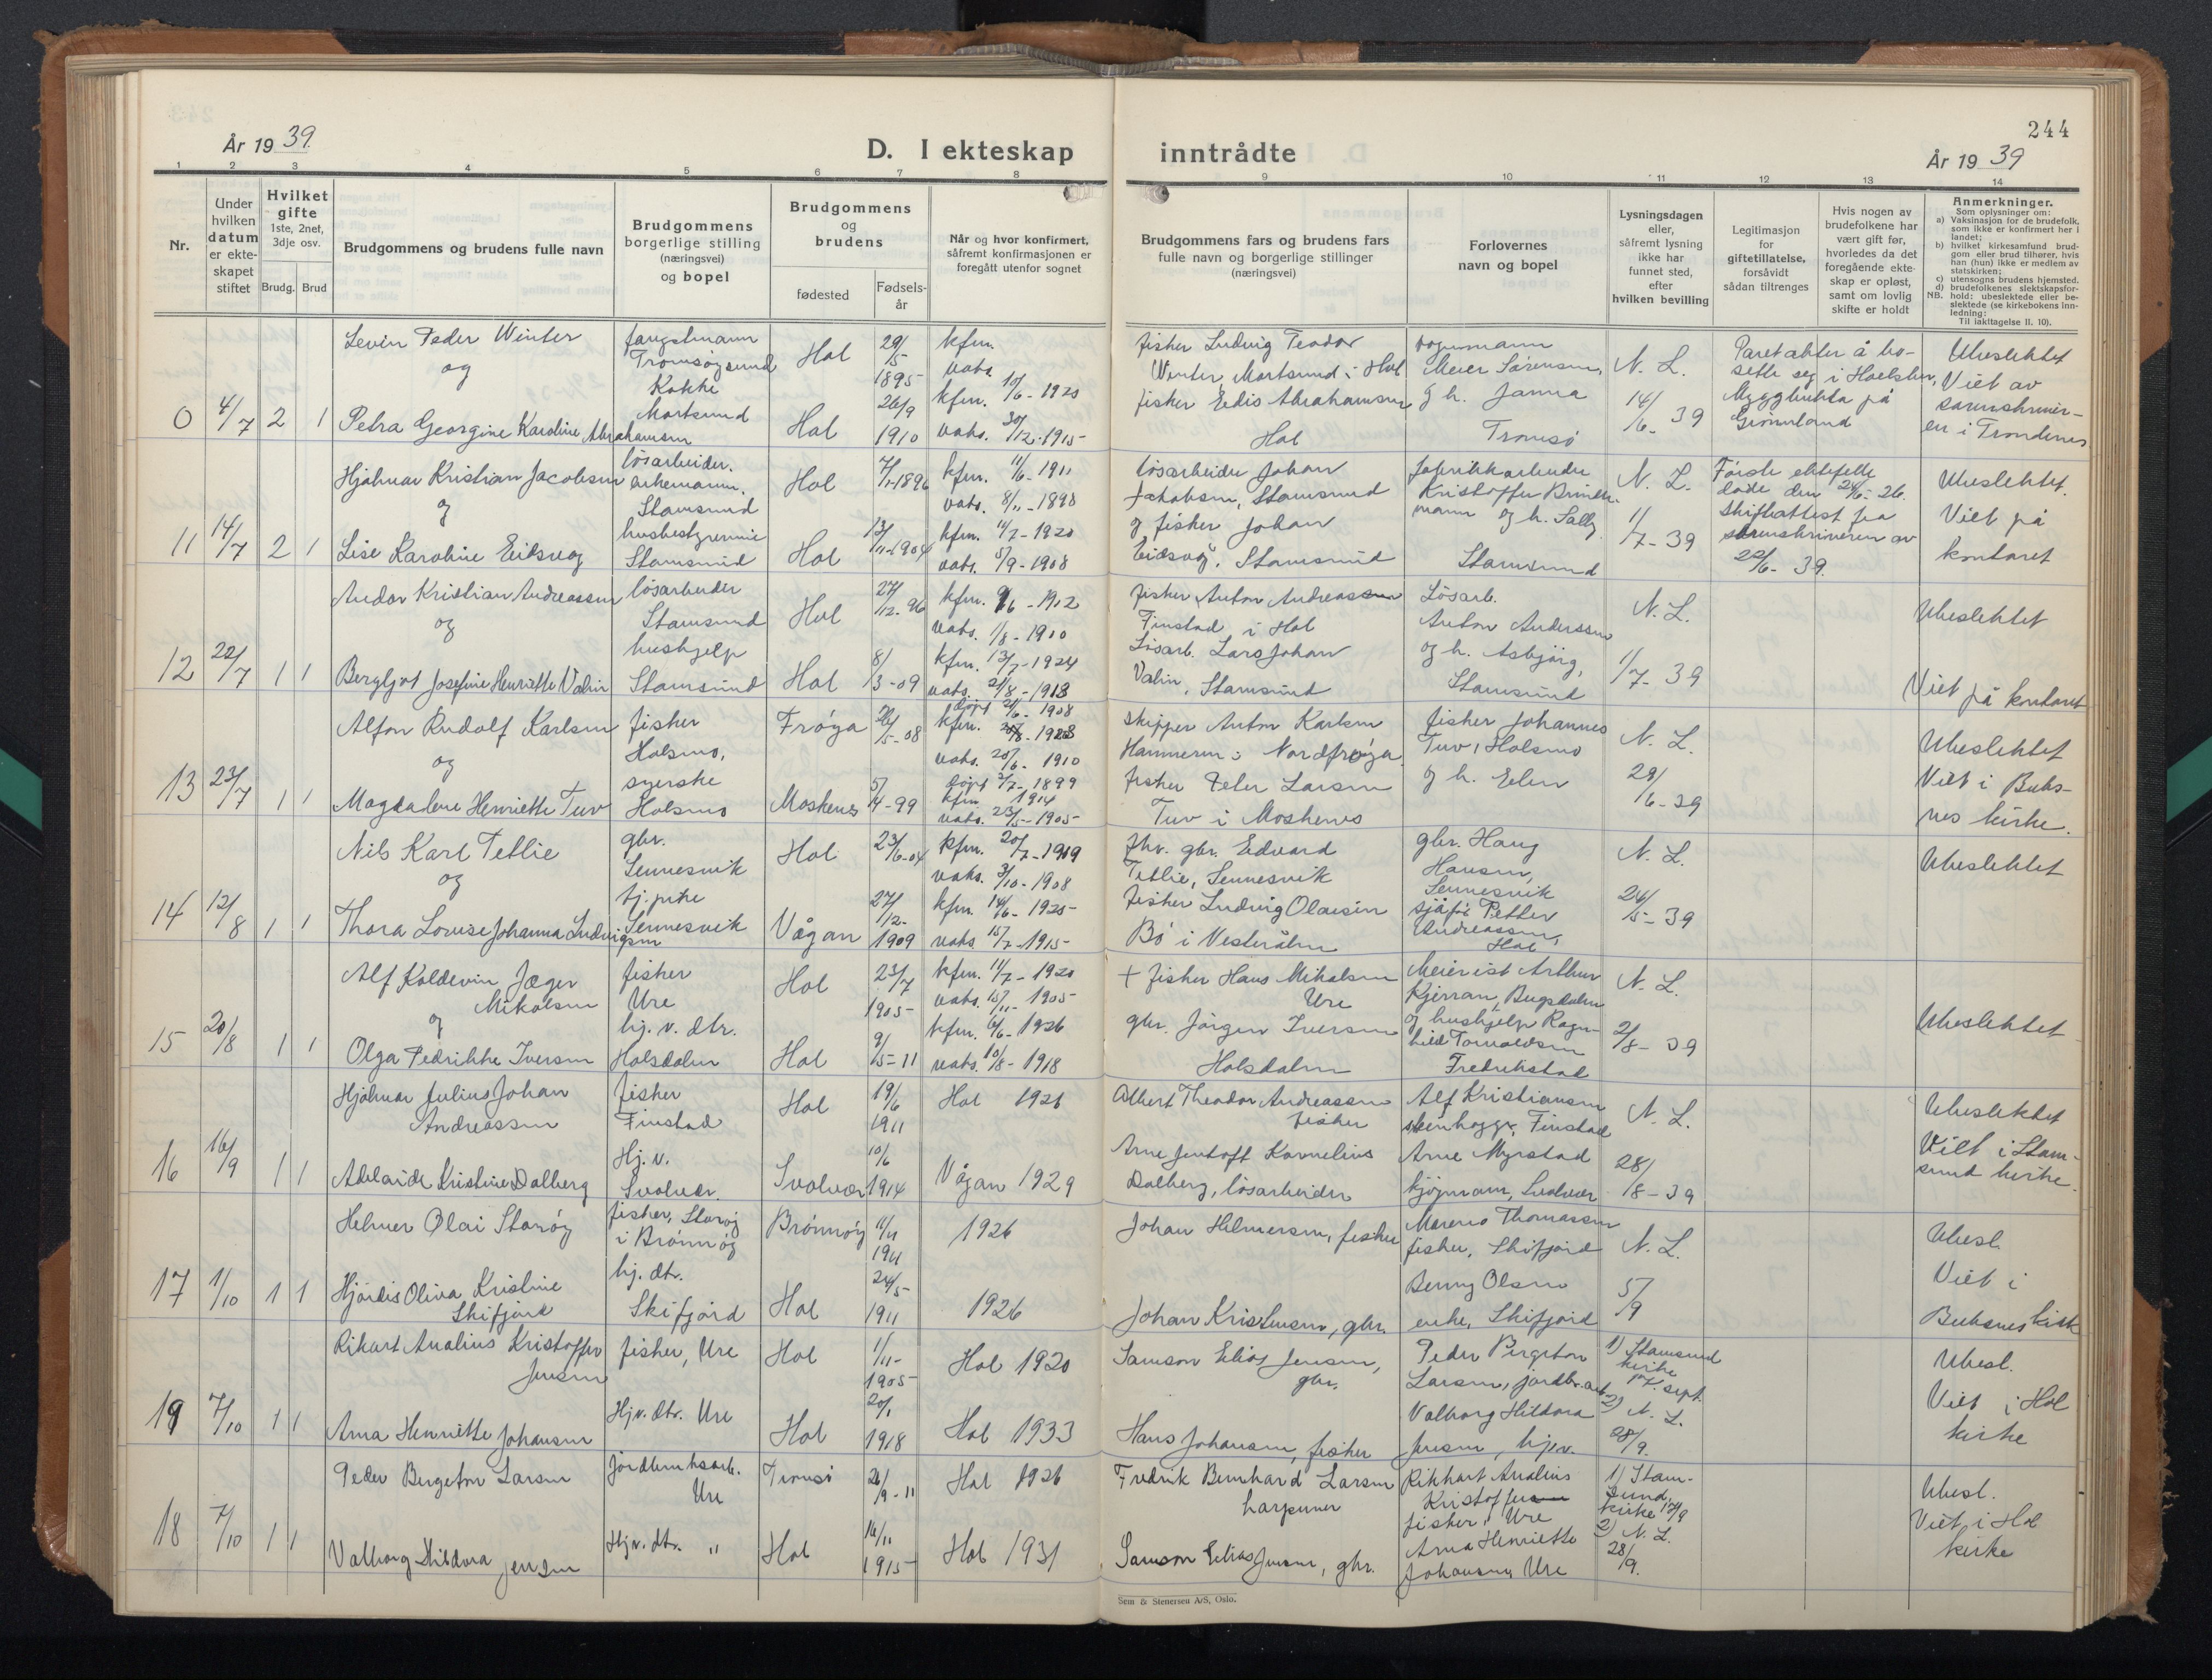 244
År 19 39. D. I ekteskap inntrådte År 19 39
1 2 3 4 5 6 7 8 9 10 11 12 13 14
Nr.
Under hvilken datum er ekteskapet stiftet
Hvilket gifte 1ste, 2net, 3dje osv.
Brudg. Brud
Brudgommens og brudens fulle navn
Brudgommens borgerlige stilling (næringsvei) og bopel
Brudgommens og brudens
fødested Fødsels-år
Når og hvor konfirmert, såfremt konfirmasjonen er foregått utenfor sognet
Brudgommens fars og brudens fars fulle navn og borgerlige stillinger (næringsvei)
Forlovernes navn og bopel
Lysningsdagen eller, såfremt lysning ikke har funnet sted, efter hvilken bevilling
Legitimasjon for giftetillatelse, forsåvidt sådan tiltrenges
Hvis nogen av brudefolkene har vært gift før, hvorledes da det foregående ekteskap er opløst, samt om lovlig skifte er holdt
Anmerkninger.
Som oplysninger om:
a) Vaksinasjon for de brudefolk, som ikke er konfirmert her i landet;
b) hvilket kirkesamfund brudgom eller brud tilhører, hvis han (hun) ikke er medlem av statskirken;
c) utensogns brudens hjemsted.
d) brudefolkenes slektskapsforhold: ubeslektede eller beslektede (se kirkebokens innledning:
NB. Til iakttagelse II. 10).
0 4/7 2 1
Levin Peder Winter
og
Petra Georgine Karoline Abrahamsen
fangstmann
Tromsøysund
Kokke
Mortsund
Hol 29/5 1895
Hol 26/9 1910
kfm.
vaks.
kfm. 10/6 - 1920
vaks. 30/12. 1915
fisker Ludvig Teodor
Winter, Mortsund i Hol
fisker Edis Abrahamsen
Hol
Meier Sørensen,
g h. Janna
Tromsø
N. L.
14/6- 39
Paret akter å bo-
sette seg i
Myggbukta på
Grønnland
Ubeslektet
Viet av
sorenskriver-
en i Trondenes
11 14/7 2 1
Hjalmar Kristian Jacobsen
og
Lise Karoline Eidsvag
løsarbeider.
enkemann.
Stamsund
husbestyrerinne
Stamsund
Hol 7/1-1896
Hol 13/11-1904
kfm. 11/6 - 1911
vaks. 8/11 - 1898
kfm. 11/7 - 1920
vaks. 5/9 - 1908
løsarbeider Johan
Jakobsen, Stamsund
og fisker Johan
Eidsvåg, Stamsund
fabrikkarbeider
Kristoffer
mann og h. Sally
Stamsund
N. L.
1/7- 39
Første ektefelle
døde den 24/6- 26.
Skifteattest fra
sorenskriveren av
22/6- 39.
Ubeslektet.
Viet på
kontoret
12 22/7 1 1
Andor Kristian Andreassen
og
Bergljot Josefine Henriette Valin
løsarbeider
Stamsund
hushjelp
Stamsund
Hol 27/12-96
Hol 8/3-09
kfm. 9/6 - 1912
vaks. 1/8 - 1910
kfm. 13/7 - 1924
vaks. 21/8 - 1913
fisker Anton Andreassen
Finstad i Hol
Løsarb. Lars Johan
Valin, Stamsund
Løsarb.
Anton Anderssen
og h. Asbjørg,
Stamsund
N. L.
1/7- 39
Ubeslektet
Viet på kontoret
13 23/7 1 1
Alfon Rudolf Karlsen
og
Magdalene Henriette Tuv
fisker
Holsmo,
syerske
Holsmo
Frøya 26/5-08
Moskenes 5/4-99
døpt 21/6 - 1908
kfm.
vaks. 20/6. 1910
døpt 2/7- 1899
kfm. 1914
vaks. 23/5- 1905
skipper Anton Karlsen
Hammeren i Nordfrøya
fisker Peter Larsen
Tuv i Moskenes
fisker Johannes
Tuv, Holsmo
g h. Elen
N. L.
29/6-39
Ubeslektet
Viet i Buks-
nes kirke.
14 12/8 1 1
Nils Karl Tetlie
og
Thora Lovise Johanna Ludvigsen
gbr.
Sennesvik
tj.pike
Sennesvik
Hol 23/6-04
Vågan 27/12- 1909
kfm. 20/7-1919
vaks. 3/10 - 1908
kfm. 14/6 - 1925
vaks 15/7-1915
fhv. gbr. Edvard
Tetlie, Sennesvik
fisker Ludvig Olausen
Bø i Vesterålen
gbr. Haug
Hansen,
Sennesvik
sjåfør Petter
Andreassen,
Hol
N. L.
26/5-39
Ubeslektet
15 20/8 1 1
Alf Koldevin Jæger
Mikalsen
og
Olga Fedrikke Iversen
fisker
Ure
hj. v. dtr.
Holsdalen
Hol 23/7 1905
Hol 9/5-11
kfm. 11/7- 1920
vaks. 15/11- 1905
kfm. 6/6- 1926
vaks. 10/8- 1918
+ fisker Hans Mikalsen
Ure
gbr. Jørgen Iversen
Holsdalen
Meierist Arthur
Kjerran, Bugsdalen
og hushjelp Ragn-
hild Tornoldsen
Fredrikstad
N. L.
2/8- 39
Ubeslektet
16 16/9 1 1
Hjalmar Julius Johan
Andreassen
Adelaide Kristine Dalberg
fisker
Finstad
Hj. v.
Svolvær.
Hol 19/6 1911
Svolvær 10/6 1914
Hol 1926
Vågan 1929
Albert Theodor Andreassen
fisker
Arne Jentoft Kornelius
Dalberg, løsarbeider
Alf Kristiansen
stenhogger, Finstad
Arne Myrstad
kjøpmann, Svolvær
N. L.
28/8-39
Ubeslektet
Viet i Stam-
sund kirke.
17 1/10 1 1
Helmer Olai Storøy
Hjørdis Oliva Kristine
Skifjord
fisher, Storøy
i Brønnøy
hj. dtr.
Skifjord
Brønnøy 11/11 1911
Hol 24/5- 1911
1926
1926
Johan Hilmersen, fisker
Johan Kristensen, gbr.
Mareno Thomassen
fisker, Skifjord
Benny Olsen
enke, Skifjord
N. L.
5/9
Ubesl.
Viet i
Buksnes kirk
19 7/10 1 1
Rikart Analius Kristoffer
Jensen
Anna Henriette Johansen
fisher, Ure
Hjv. dtr. Ure
Hol 1/11- 1905
Hol 20/1 1918
Hol 1920
Hol 1933
Samson Elias Jensen,
gbr.
Hans Johansen, fisker
Peder Bergeton
Larsen, jordbr.arb
Valborg Hildora
Jensen, hjv.
1) Stamsund
kirke
17. sept.
2) N. L.
28/9.
Ubesl.
Viet i Hol
kirke
18 7/10 1 1
Peder Bergeton Larsen
Valborg Hildora Jensen
Jordbruksarb.
Ure
Hjv. dtr. "
Tromsø 26/9-11
Hol 16/11 1915
Hol 1926
Hol 1931
Fredrik Bernhard Larsen
harpuner
Samson Elias Jensen, gbr.
Rikhart Analius
Kristoffersen
fisker, Ure
Anna Henriette
Johansen, Ure
1) Stam-
sund
kirke 17/9
2) N. L.
28/9.
Ubesl.
Viet i Hol
kirke
Sem & Stenersen A/S, Oslo.